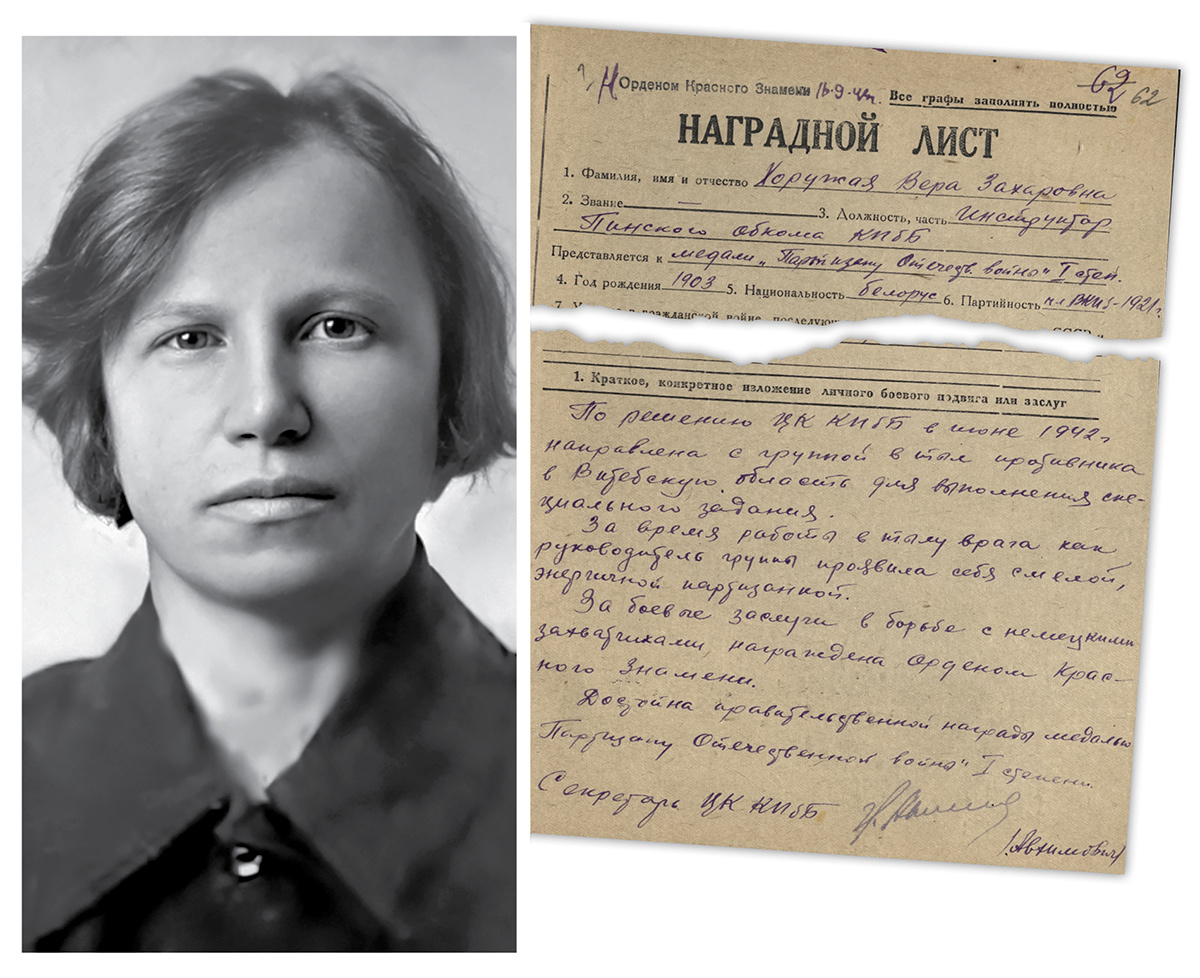 Орденом Красного Знамени 16-9-42г.
62
62
Все графы заполнять полностью
НАГРАДНОЙ ЛИСТ
1. Фамилия, имя и отчество Хоружая Вера Захаровна
2. Звание — 3. Должность, часть Инструктор
Пинского обкома КПбБ
Представляется к медали „Партизану Отечеств. войны" I степ.
4. Год рождения 1903 5. Национальность белорус 6. Партийность чл ВКПб-1921г.
1. Краткое, конкретное изложение личного боевого подвига или заслуг
По решению ЦК КПбБ в июне 1942г
направлена с группой в тыл противника
в Витебскую область для выполнения спе-
циального задания.
За время работы в тылу врага как
руководитель группы проявила себя смелой,
энергичной партизанкой.
За боевые заслуги в борьбе с немецкими
захватчиками, награждена Орденом Крас-
ного Знамени.
Достойна правительственной награды медалью
Партизану Отечественной войны" I степени.
Секретарь ЦК КПбБ
/Авхимович/